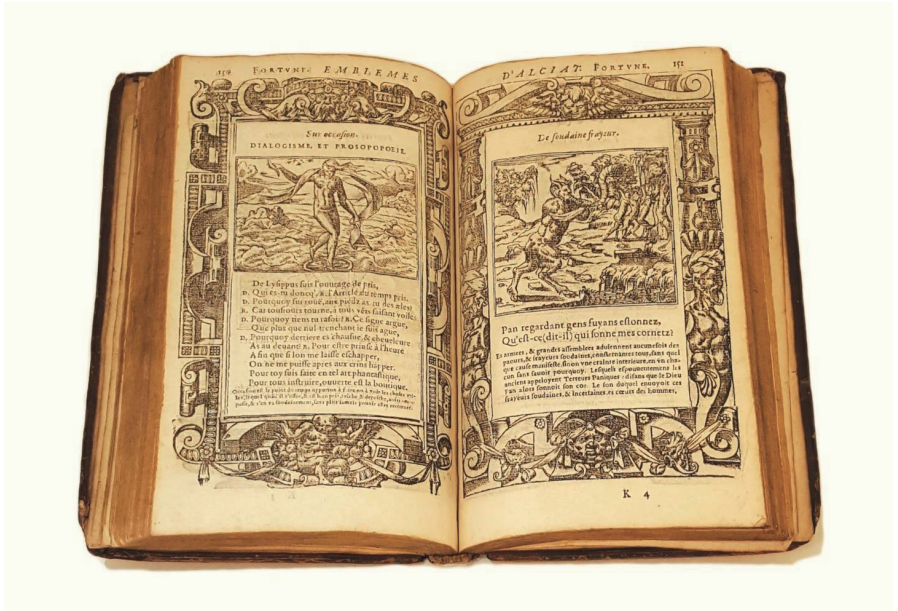 150 FORTVNE. EMBLEMES
Sur occasion.
DIALOGISME, ET PROSOPOPOEIE.
De Lysippus suis l'ouurage de pris,
D. Qui es-tu doncq? R. l'Article du temps pris.
D. Pourquoy sur rouë, aux piedz as tu des æles?
R. Car tousiours tourne, à tous vẽts faisant voiles.
D. Pourquoy tiens tu rasoir? R. Ce signe argue,
Que plus que nul trenchant ie suis ague,
D. Pourquoy derriere es chauue, & cheueleure
As au deuant? R. Pour estre prinse à l'heure
A fin que si lon me laisse eschapper,
On ne me puisse apres aux crins happer.
Pour toy suis faite en tel art phantastique,
Pour tous instruire, ouuerte est la boutique.
D'ALCIAT. FORTVNE. 151
De soudaine frayeur.
Pan regardant gens fuyans estonnez,
Qu'est-ce (dit-il) qui sonne mes cornetz?
Es armées, & grandes assemblées aduiennent aucunesfois des
paours, & frayeurs soudaines, consternantes tous, sans quel
que cause manifeste, sinon vne crainte interieure, en vn cha-
cun sans sauoir pourquoy. Lesquels espouuentemens les
anciens appeloyent Terreurs Paniques: disans que le Dieu
Pan alors sonnoit son cor. Le son duquel enuoyoit ces
frayeurs soudaines, & incertaines, es cœurs des hommes,
K 4